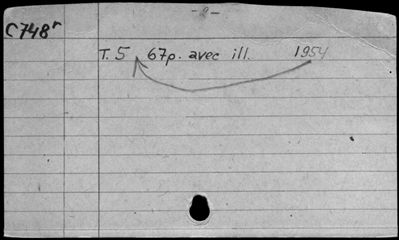 -2-
C748r
T. 5 67p. avec ill. 1954